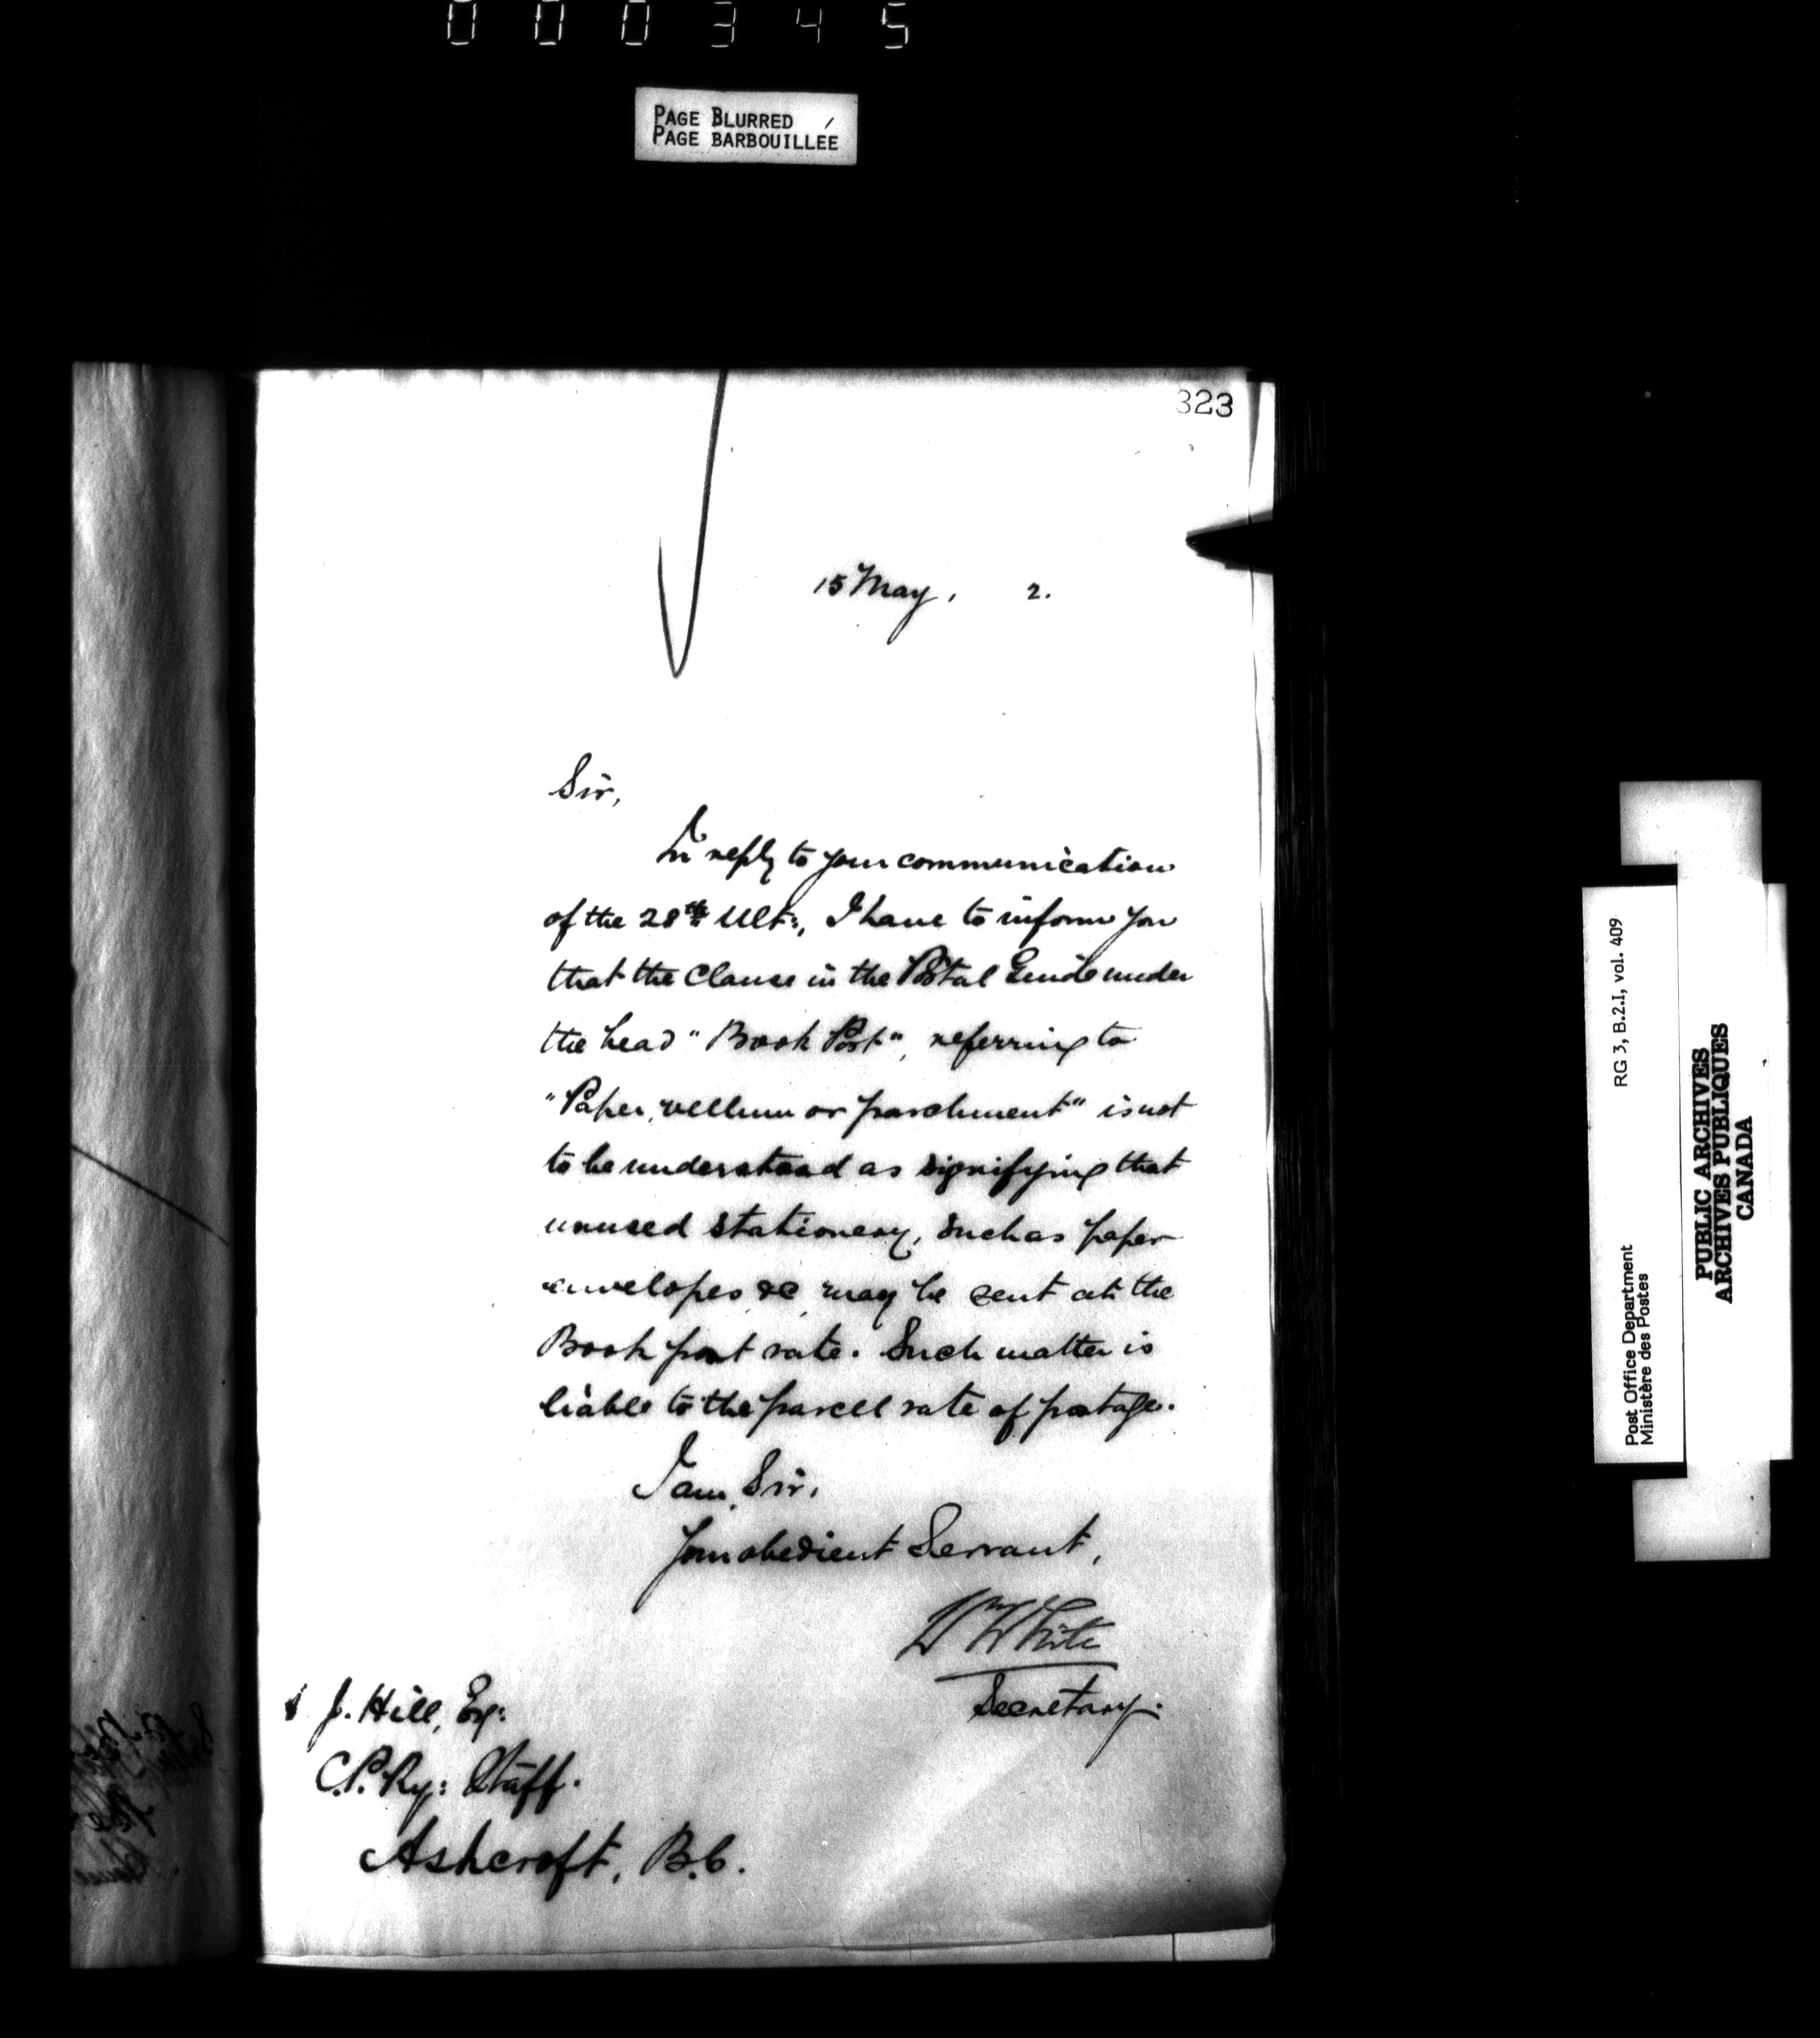 000345
PAGE BLURRED
PAGE BARBOUILLÉE
323
15 May, 2.
Sir,
In reply to your communication
of the 28th Ult:, I have to inform you
that the Clause in the Postal Guide under
the head "Book Post", referring to
"Paper, vellum or parchment" is not
to be understood as signifying that
unused stationery, such as paper
envelopes &c may be sent at the
Book post rate. Such matter is
liable to the parcel rate of postage.
I am, Sir,
Your obedient Servant,
Wm White
Secretary.
J. Hill, Esq:
C.P. Ry: Staff.
Ashcroft, B.C.
RG 3, B.2.I, vol. 409
Post Office Department
Ministère des Postes
PUBLIC ARCHIVES
ARCHIVES PUBLIQUES
CANADA